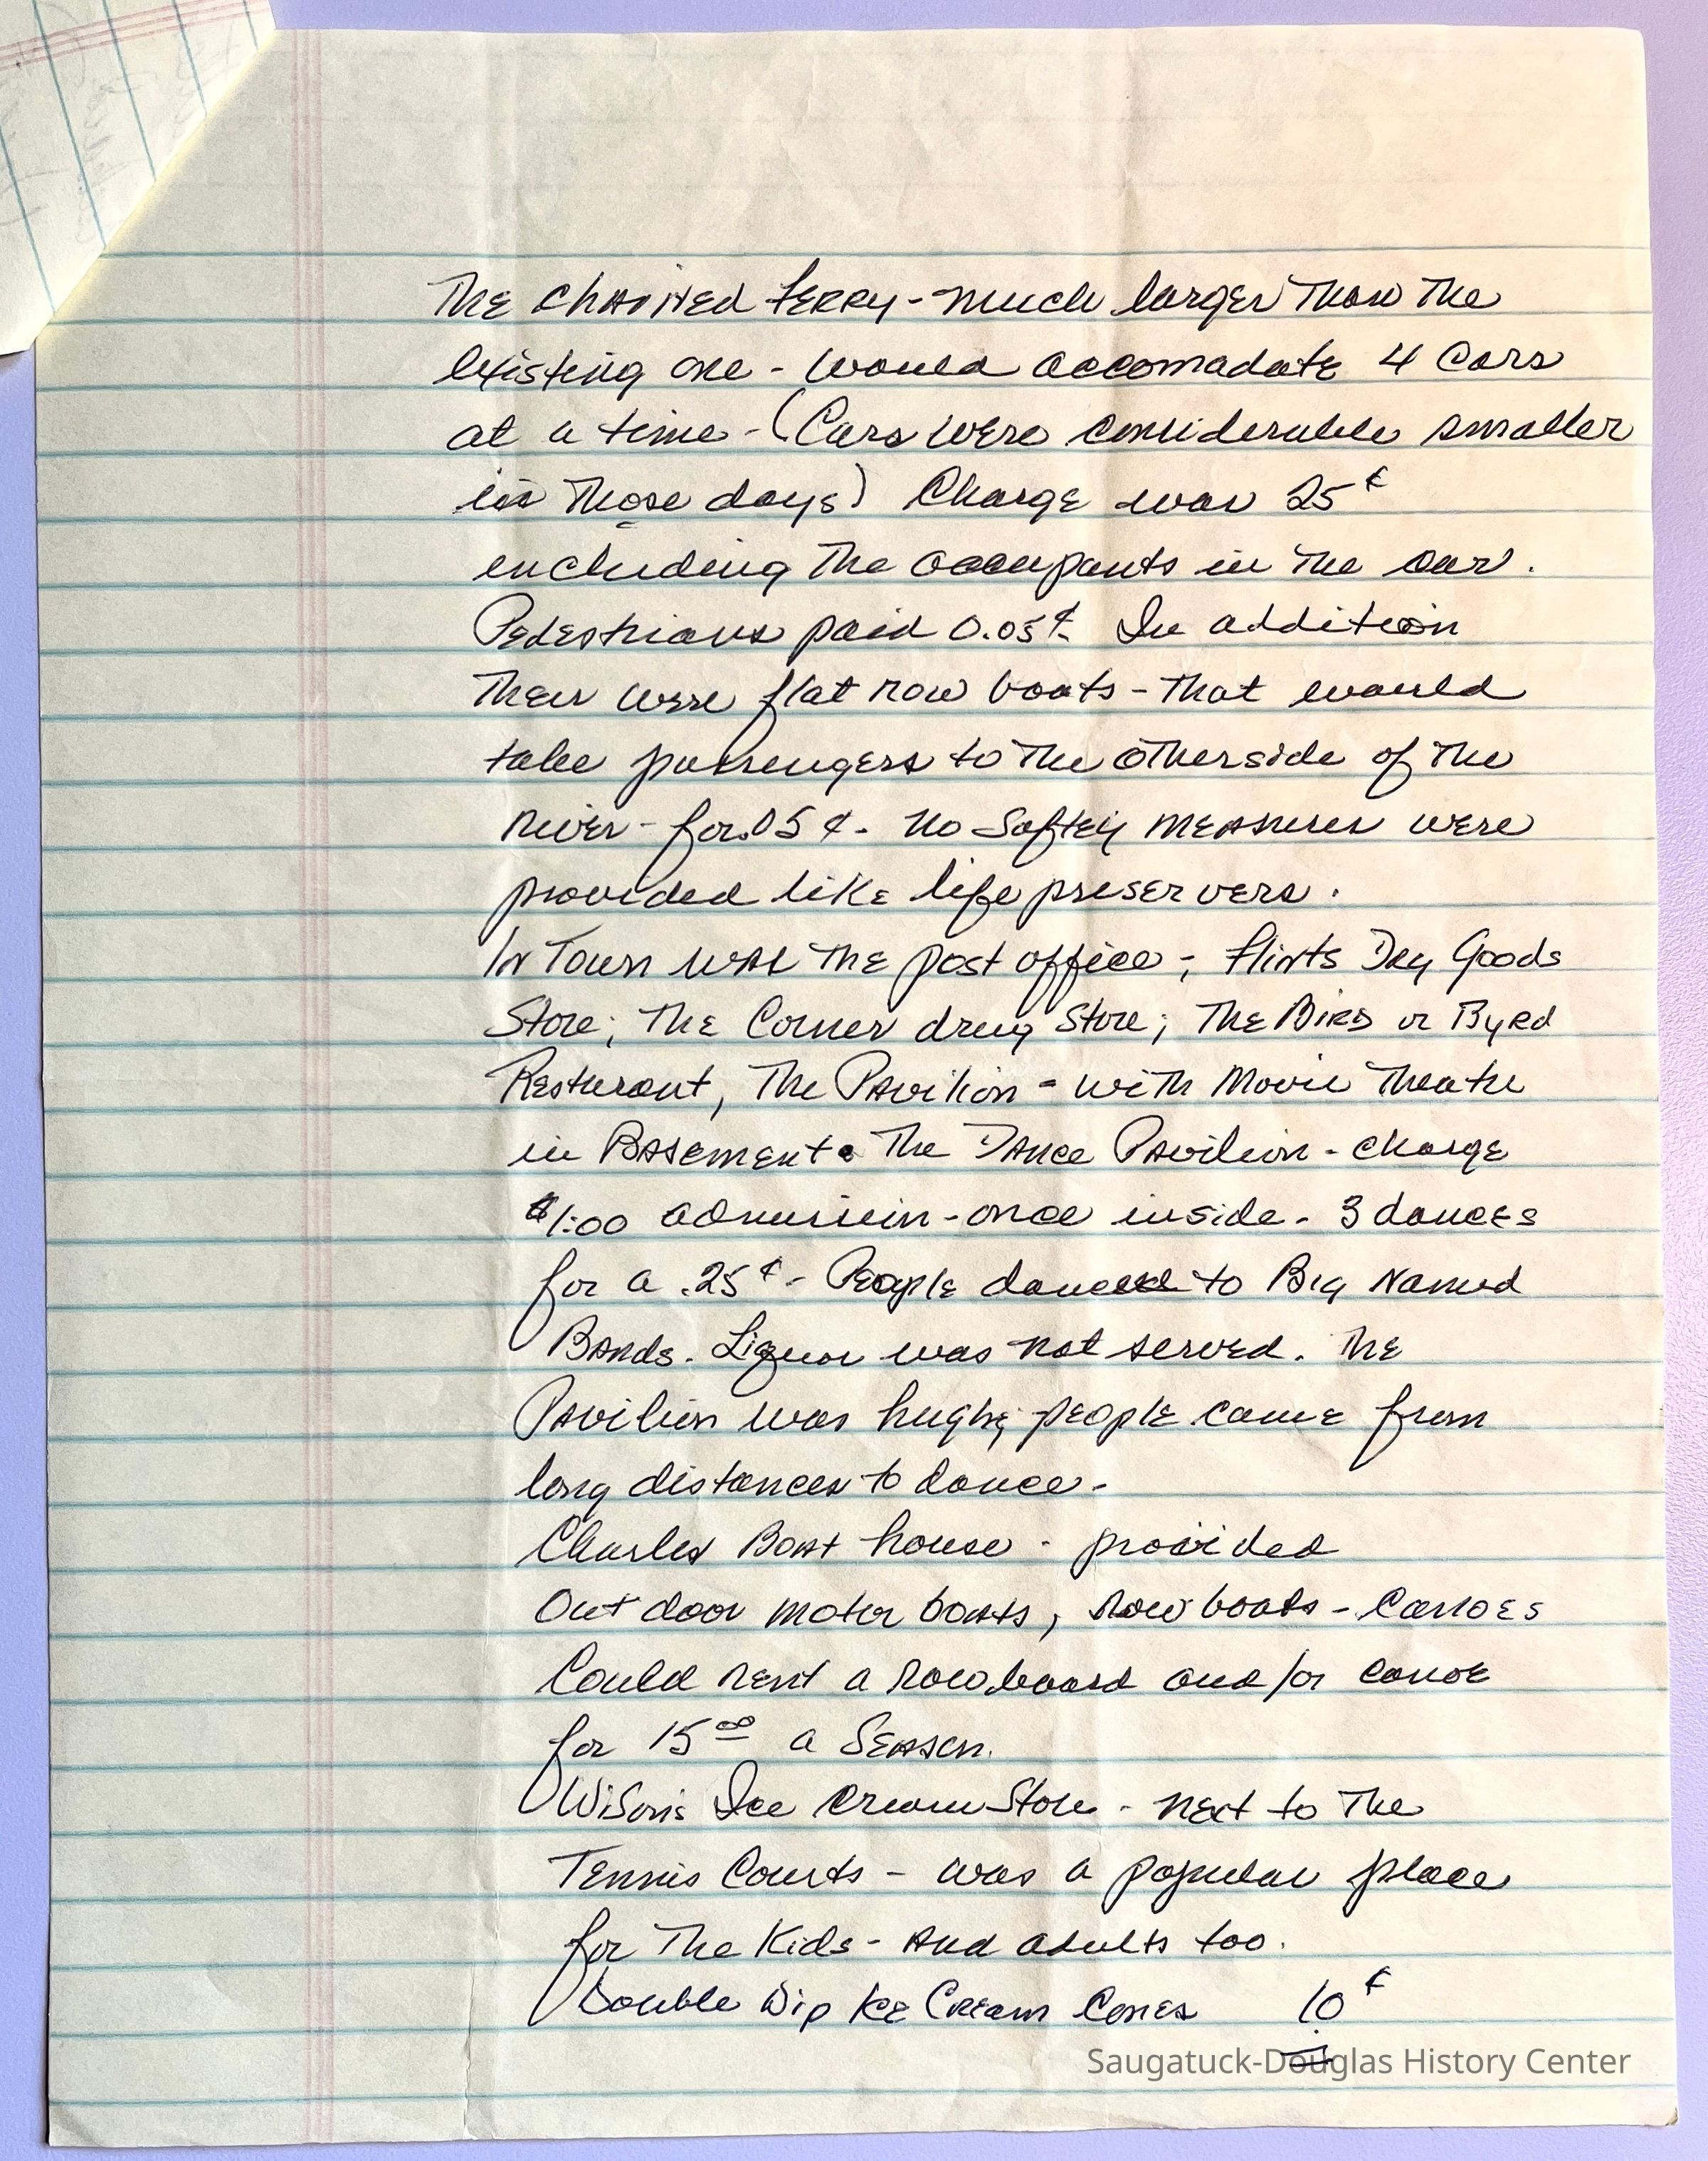 The chained ferry - much larger than the
existing one - would accomadate 4 cars
at a time - (Cars were considerable smaller
in those days) Charge was 25¢
including the occupants in the car.
Pedestrians paid 0.05¢. In addition
Their were flat row boats - that would
take passengers to the otherside of the
river - for .05¢. No Saftey measures were
provided like life preservers.
In Town was the post office -, Flints Dry Goods
Store; The Corner drug Store; The Bird or Byrd
Resturant, The Pavilion - with Movie Theatre
in Basement. The Dance Pavilion - charge
$1.00 admission - once inside - 3 dances
for a .25¢ - People danced to Big Named
Bands. Liquor was not served. The
Pavilion was hughe, people came from
long distances to dance.
Charles Boat house - provided
Out door motor boats, row boats - Canoes
Could rent a rowboard and/or canoe
for 15.00 a Season.
Wilson's Ice Cream Store - next to the
Tennis Courts - was a popular place
for the Kids - and adults too.
Double Dip Ice Cream Cones 10¢
Saugatuck-Douglas History Center